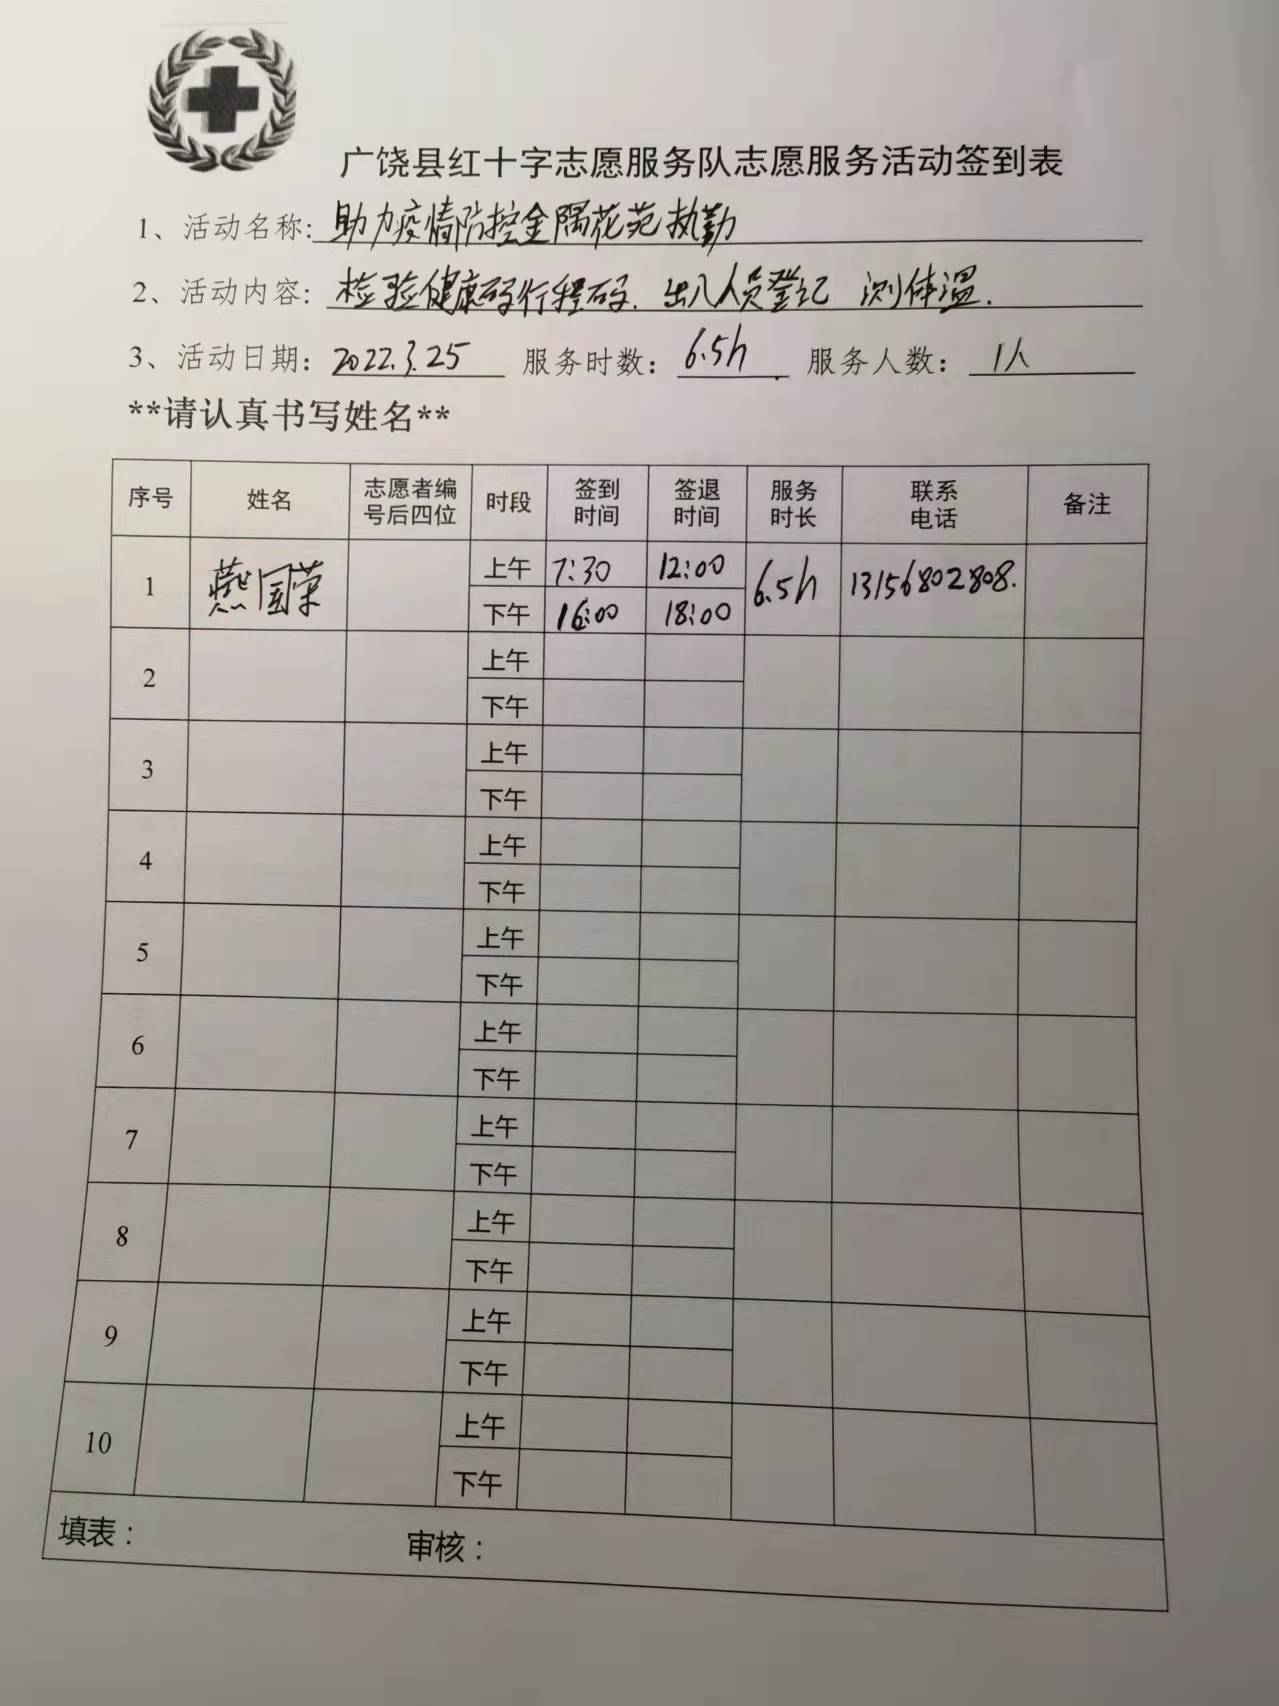 广饶县红十字志愿服务队志愿服务活动签到表
1、活动名称: 助力疫情防控金隅花苑执勤
2、活动内容: 检验健康码行程码. 出入人员登记 测体温.
3、活动日期: 2022.3.25 服务时数: 6.5h 服务人数: 1人
**请认真书写姓名**
序号 姓名 志愿者编号后四位 时段 签到时间 签退时间 服务时长 联系电话 备注
1 燕国荣 上午 7:30 12:00 6.5h 13156802808.
下午 16:00 18:00
2 上午
下午
3 上午
下午
4 上午
下午
5 上午
下午
6 上午
下午
7 上午
下午
8 上午
下午
9 上午
下午
10 上午
下午
填表: 审核: